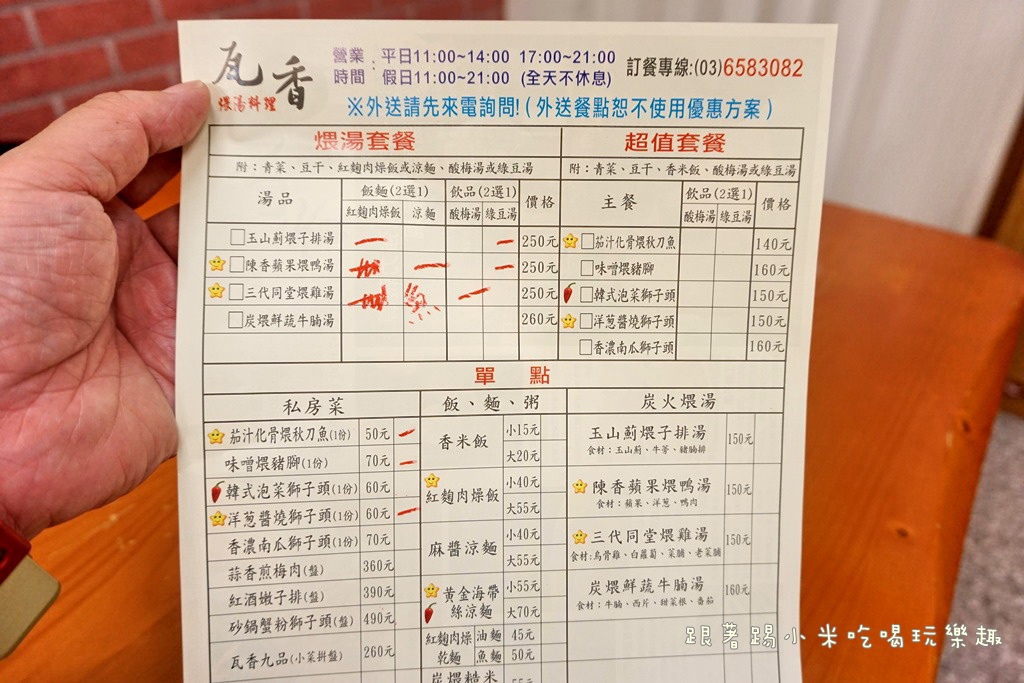 瓦香
煨湯料理
營業時間：平日11:00~14:00 17:00~21:00
假日11:00~21:00 (全天不休息)
訂餐專線:(03)6583082
※外送請先來電詢問!(外送餐點恕不使用優惠方案)
煨湯套餐
附：青菜、豆干、紅麴肉燥飯或涼麵、酸梅湯或綠豆湯
湯品 飯麵(2選1) 飲品(2選1) 價格
紅麴肉燥飯 涼麵 酸梅湯 綠豆湯
玉山薊煨子排湯 250元
陳香蘋果煨鴨湯 250元
三代同堂煨雞湯 250元
炭煨鮮蔬牛腩湯 260元
超值套餐
附：青菜、豆干、香米飯、酸梅湯或綠豆湯
主餐 飲品(2選1) 價格
酸梅湯 綠豆湯
茄汁化骨煨秋刀魚 140元
味噌煨豬腳 160元
韓式泡菜獅子頭 150元
洋蔥醬燒獅子頭 150元
香濃南瓜獅子頭 160元
單 點
私房菜
茄汁化骨煨秋刀魚(1份) 50元
味噌煨豬腳(1份) 70元
韓式泡菜獅子頭(1份) 60元
洋蔥醬燒獅子頭(1份) 60元
香濃南瓜獅子頭(1份) 70元
蒜香煎梅肉(盤) 360元
紅酒嫩子排(盤) 390元
砂鍋蟹粉獅子頭(盤) 490元
瓦香九品(小菜拼盤) 260元
飯、麵、粥
香米飯 小15元
大20元
紅麴肉燥飯 小40元
大55元
麻醬涼麵 小40元
大55元
黃金海帶絲涼麵 小55元
大70元
紅麴肉燥乾麵 油麵 45元
魚麵 50元
炭煨糙米
炭火煨湯
玉山薊煨子排湯 150元
食材：玉山薊、牛蒡、豬腩排
陳香蘋果煨鴨湯 150元
食材：蘋果、洋蔥、鴨肉
三代同堂煨雞湯 150元
食材:烏骨雞、白蘿蔔、菜脯、老菜脯
炭煨鮮蔬牛腩湯 160元
食材：牛腩、西芹、甜菜根、番茄
跟著踢小米吃喝玩樂趣